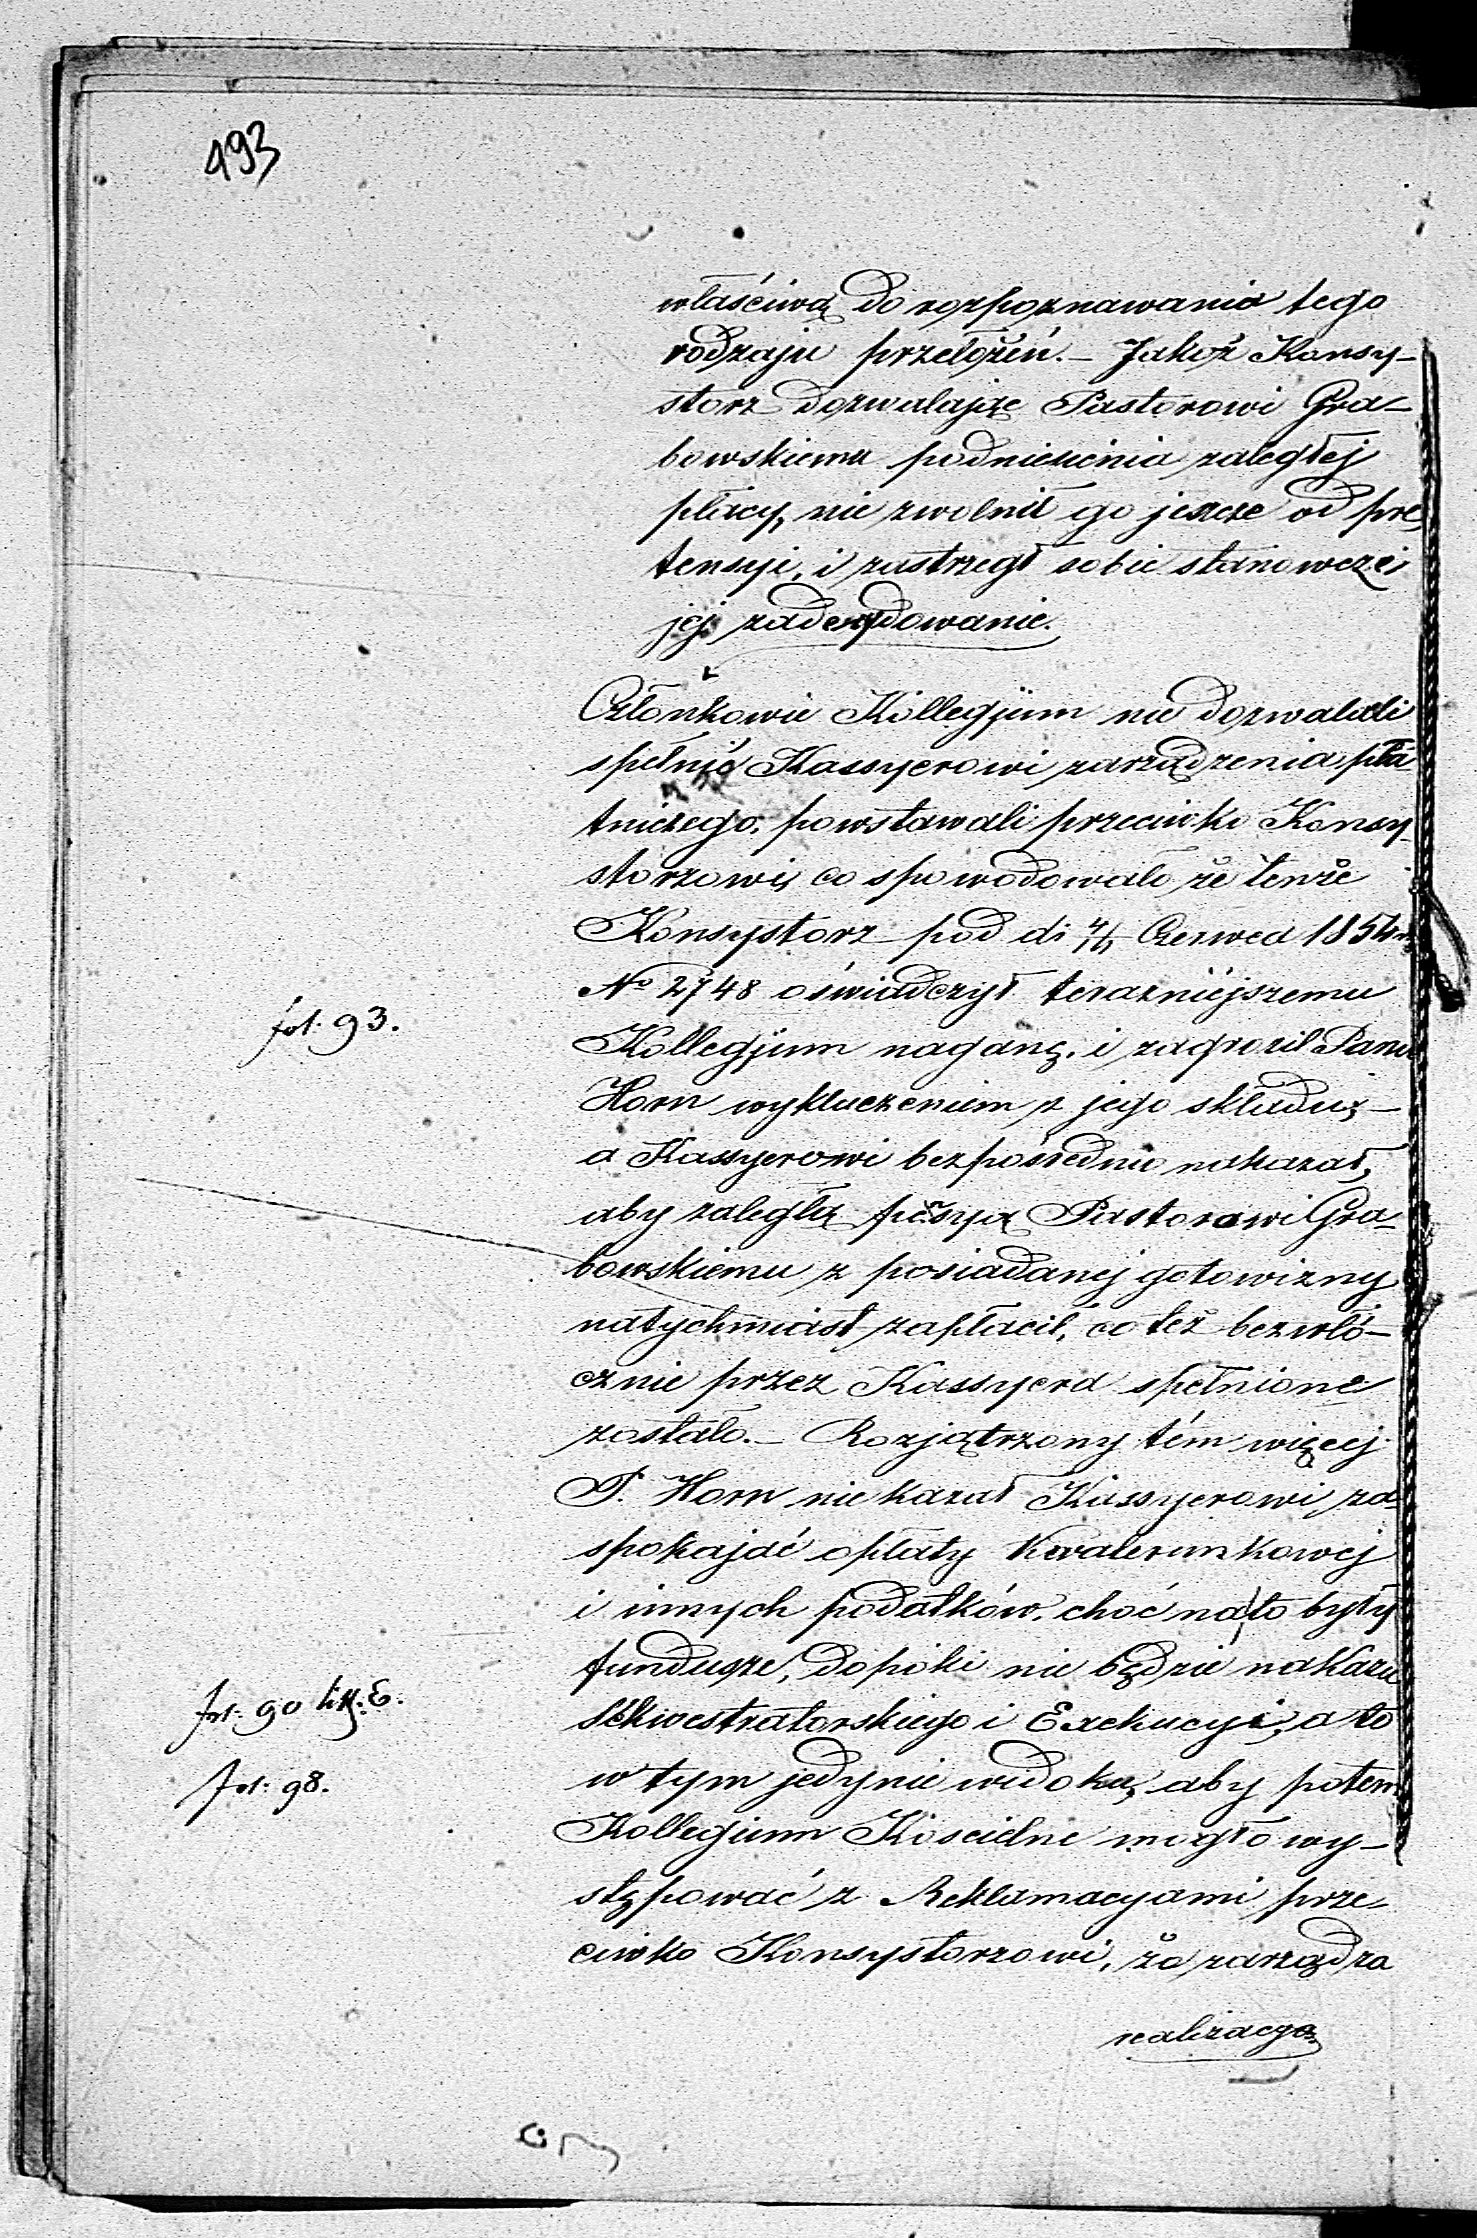 493
właściwą do rozpoznawania tego
rodzaju przełożeń. – Jakoż Konsy-
storz dozwalając Pastorowi Gra-
bowskiemu podniesienia zaległej
płacy, nie zwolnił go jeszcze od pre
tensyi, i zastrzegł sobie stanowcze
jej zadecydowanie.
Członkowie Kollegjum nie dozwalali
spełnić Kassyerowi zarządzenia pła
tniczego, powstawali przeciwko Konsy-
storzowi, co spowodowało że tenże
Konsystorz pod d: Czerwca 1854 r.
No 2748 oświadczył teraźniejszemu
fol. 93.
Kollegjum naganę, i zagroził Panu
Horn wykluczeniem z jego składu, –
a Kassyerowi bezpośrednio nakazał,
aby zaległą pęsyą Pastorowi Gra-
bowskiemu z posiadanej gotowizny
natychmiast zapłacił, co też bezwło-
cznie przez Kassyera spełnione
zostało. – Rozjątrzony tém więcej
P. Horn nie kazał Kassyerowi za
spokajać opłaty Kwaterunkowej
i innych podatków, choć na to były
fundusze, dopóki nie będzie nakazu
fol: 90 litt. E.
Sekwestratorskiego i Exekucyi, a to
fol: 98.
w tym jedynie widoku, aby potem
Kollegium Kościelne mogło wy-
stępować z Reklamacyami prze-
ciwko Konsystorzowi, że zarządza
realizacyą